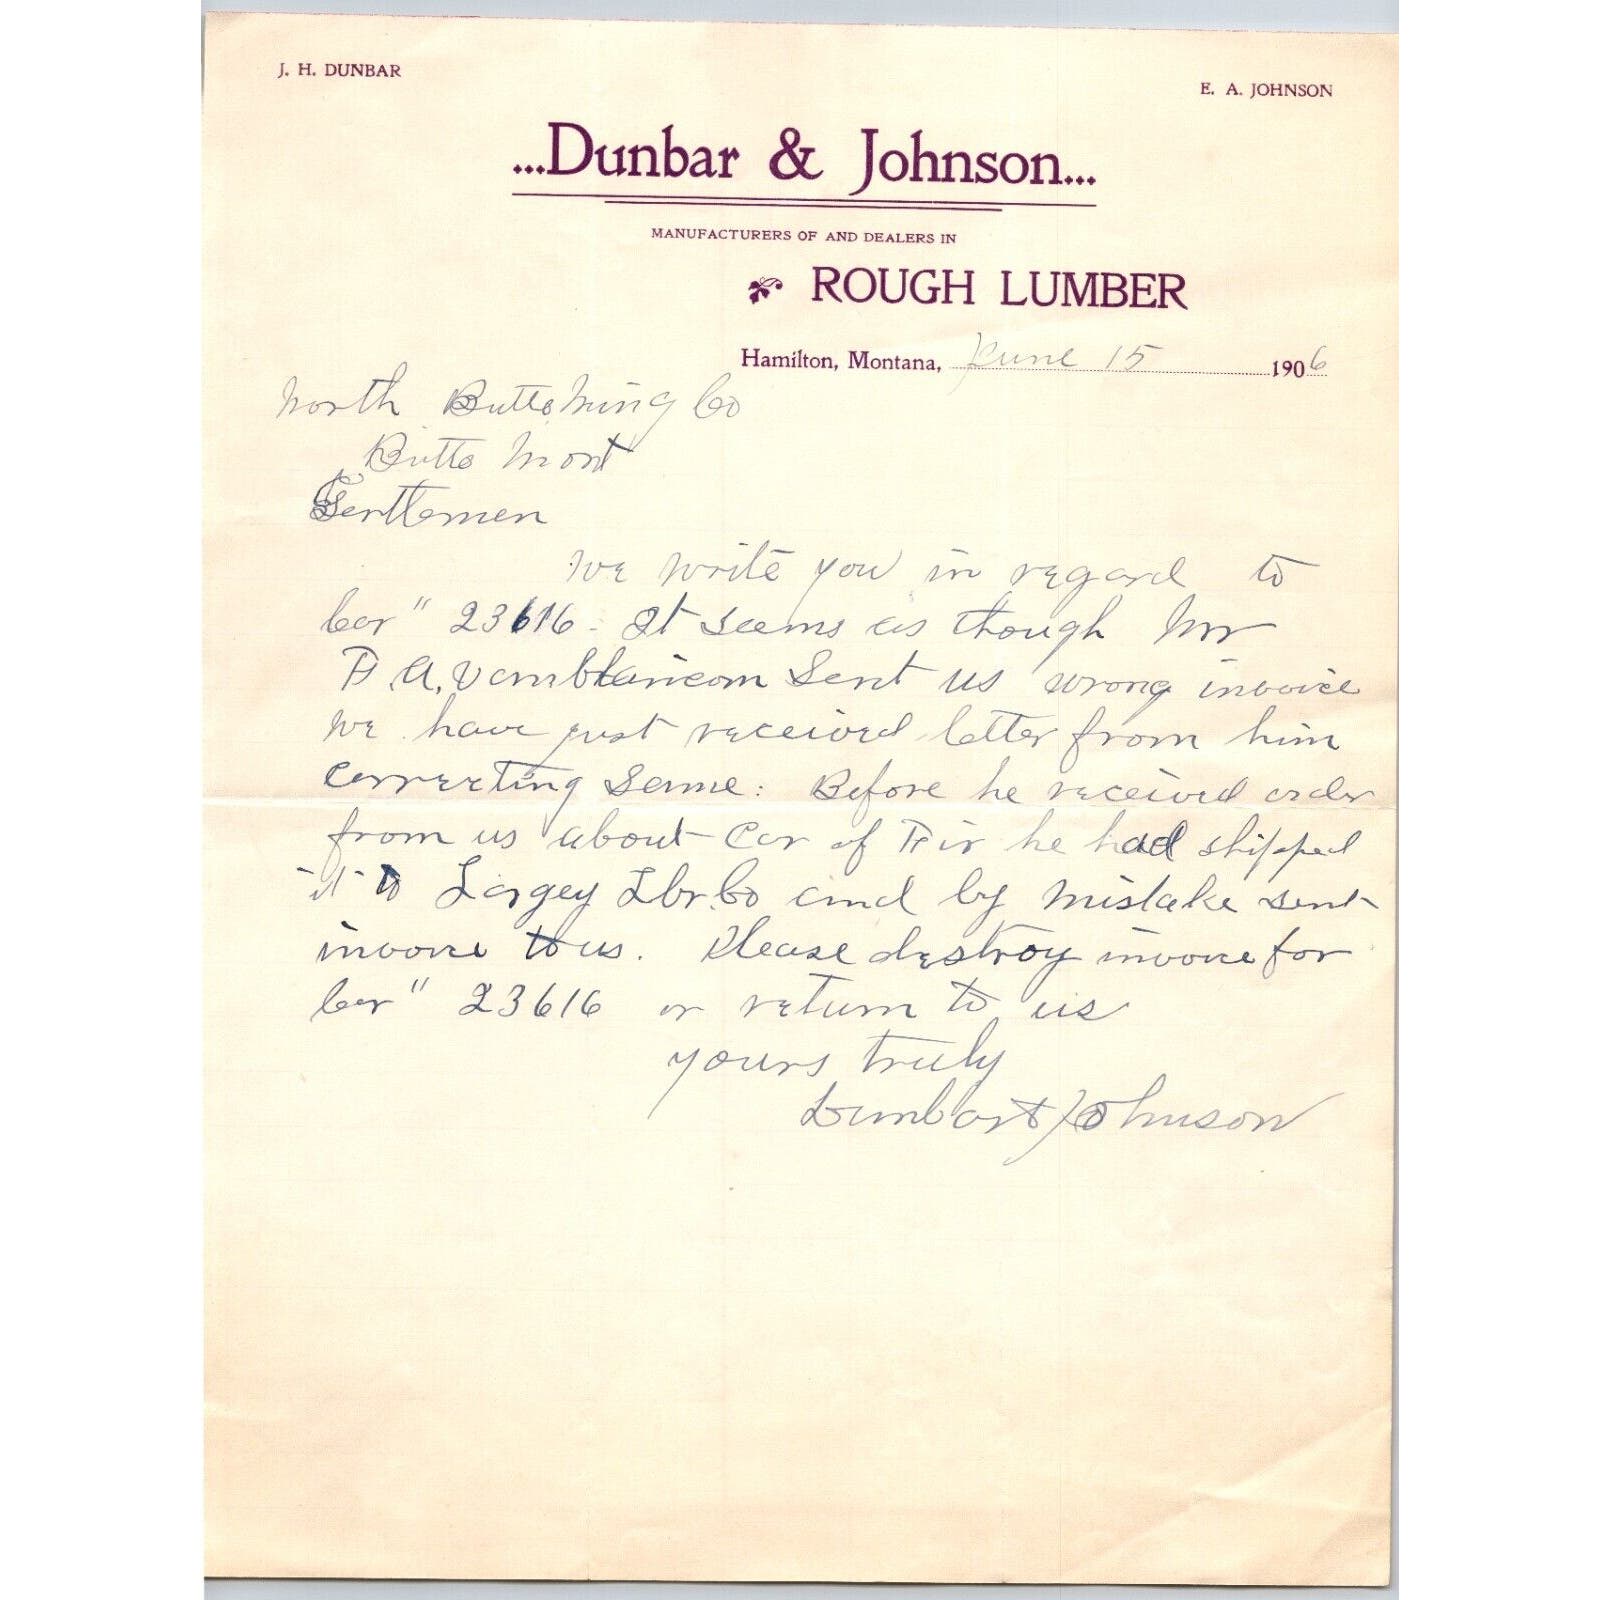 J. H. DUNBAR
E. A. JOHNSON
...Dunbar & Johnson...
MANUFACTURERS OF AND DEALERS IN
ROUGH LUMBER
Hamilton, Montana, June 15 1906
North Butte Mining Co
Butte Mont
Gentlemen
We write you in regard to
Car " 23616 - It seems as though Mr
F. A. sent us wrong invoice
We have just received letter from him
correcting same: Before he received order
from us about Car of Fir he had shipped
it to Largey Lbr. Co and by mistake sent
invoice to us. Please destroy invoice for
Car " 23616 or return to us
yours truly
Dunbar & Johnson